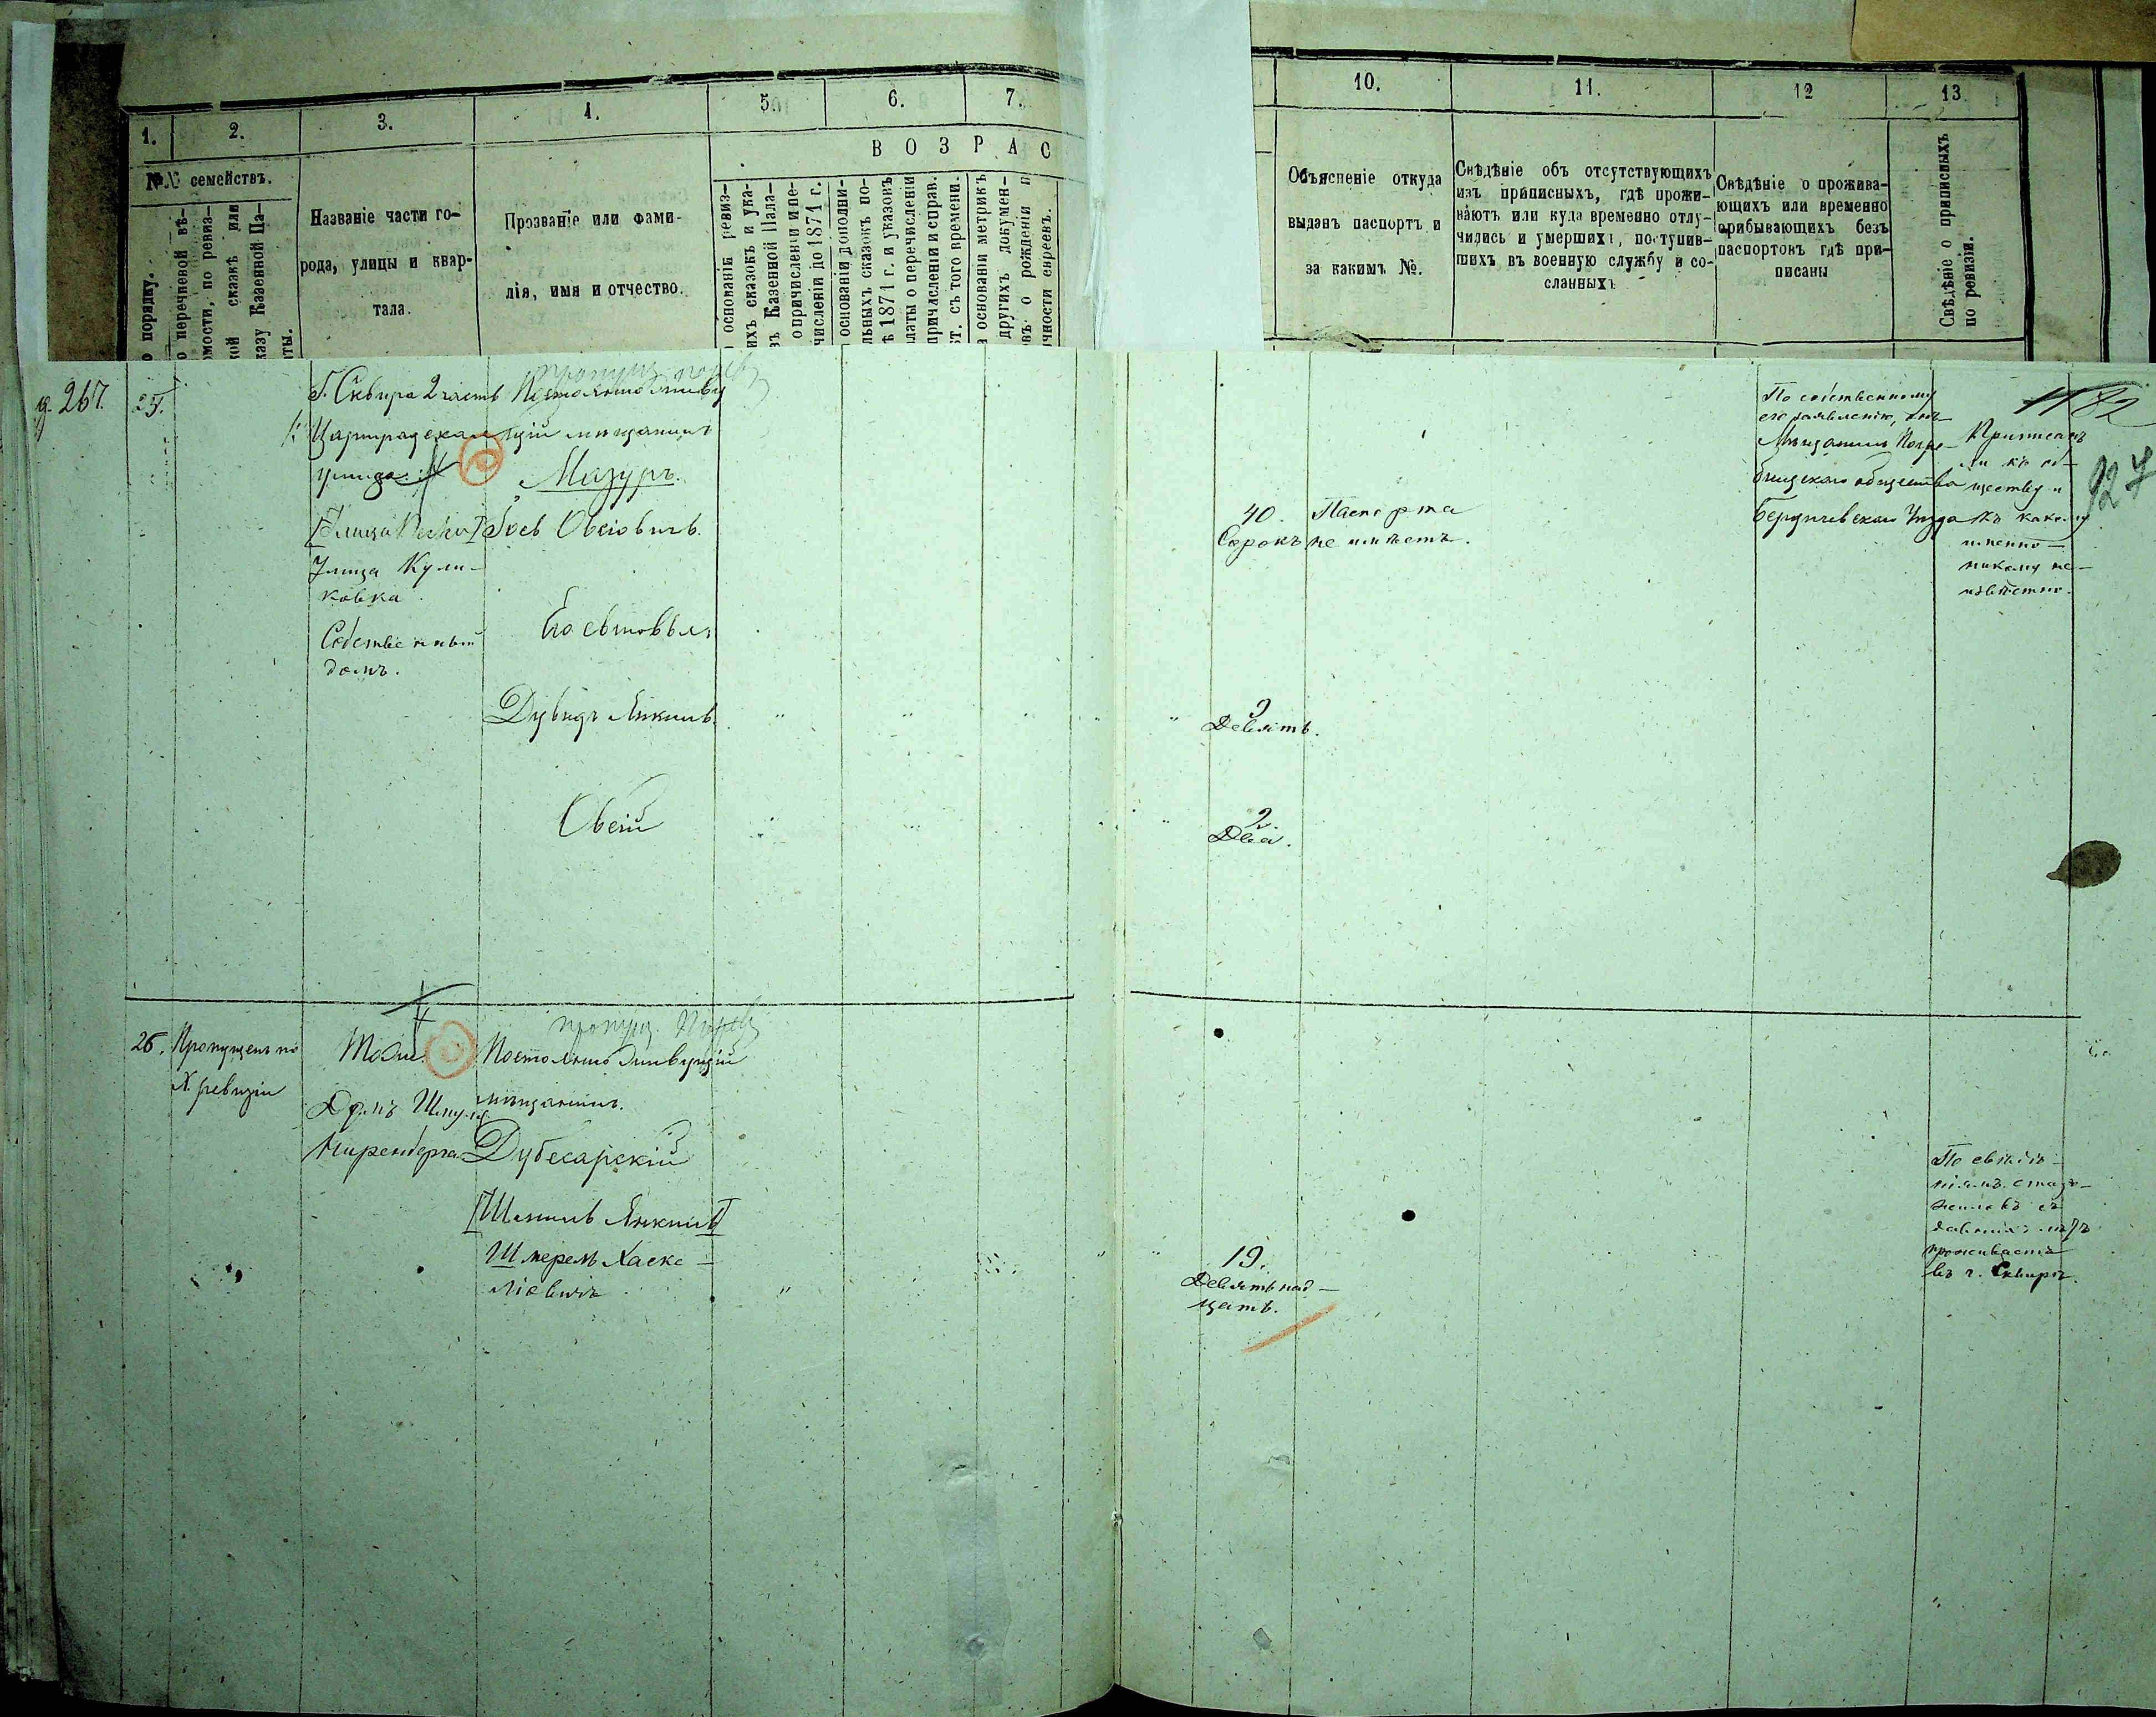 1.
2.
3.
4.
5
6.
7.
10.
11.
12
13
ВОЗРАС
№№ семействъ.
о порядку.
о перечневой вѣ-
омости, по ревиз-
кой сказкѣ или
казу Казенной Па-
ты.
Названіе части го-
рода, улицы и квар-
тала.
Прозваніе или фами-
лія, имя и отчество.
основаніи ревиз-
ихъ сказокъ и ука-
въ Казенной Пала-
о причисленіи и пе-
численіи до 1871 г.
основаніи дополни-
льныхъ сказокъ по-
ѣ 1871 г. и указовъ
латы о перечисленіи
причисленіи и справ.
т. съ того времени.
основаніи метрикъ
другихъ докумен-
овъ о рожденіи и
ичности евреевъ.
Объясненіе откуда
выданъ паспортъ и
за какимъ №.
Свѣдѣніе объ отсутствующихъ
изъ приписныхъ, гдѣ прожи-
ваютъ или куда временно отлу-
чились и умершихъ, поступив-
шихъ въ военную службу и со-
сланныхъ
Свѣдѣніе о прожива-
ющихъ или временно
прибывающихъ безъ
паспортовъ гдѣ при-
писаны
Свѣдѣніе о приписныхъ
по ревизіи.
267.
25.
Г. Сквира 2 часть
Цариградская
улица
Улица Кули-
ковка
Собственный
домъ.
Постоянно живу
щій мѣщанинъ
Мазуръ.
Овсіовичъ.
Его сыновья
Дувидъ Янкель
Овсій
40.
Сорокъ
Паспорта
не имѣетъ.
9
Девять.
2.
Два.
По собственному
его заявленію,
Мѣщанинъ Погре-
бищскаго общества
Бердичевскаго Уѣзда
Приписанъ
ли къ об-
ществу и
къ какому
именно —
никому не-
извѣстно.
82
927
26.
Пропущенъ по
X. ревизіи
Тоже
Домъ Шмуля
Ниренберга
Постоянно живущій
мѣщанинъ.
Дубесарскій
Янкель
Шмерель Хаске-
ліовичъ
19.
Девятьнад-
цать.
По свѣдѣ-
ніямъ старо-
давнихъ лѣтъ
проживаетъ
въ г. Сквирѣ.